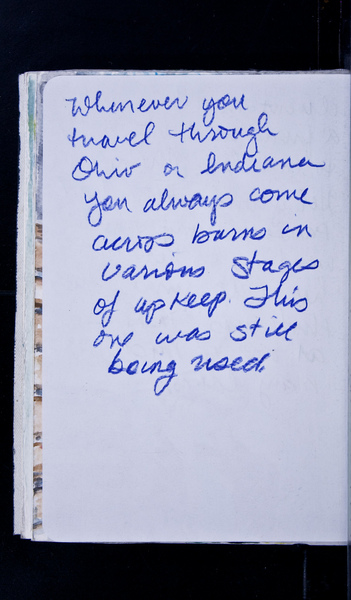 Whenever you
travel through
Ohio or Indiana
you always come
across barns in
various stages
of upkeep. This
one was still
being used.